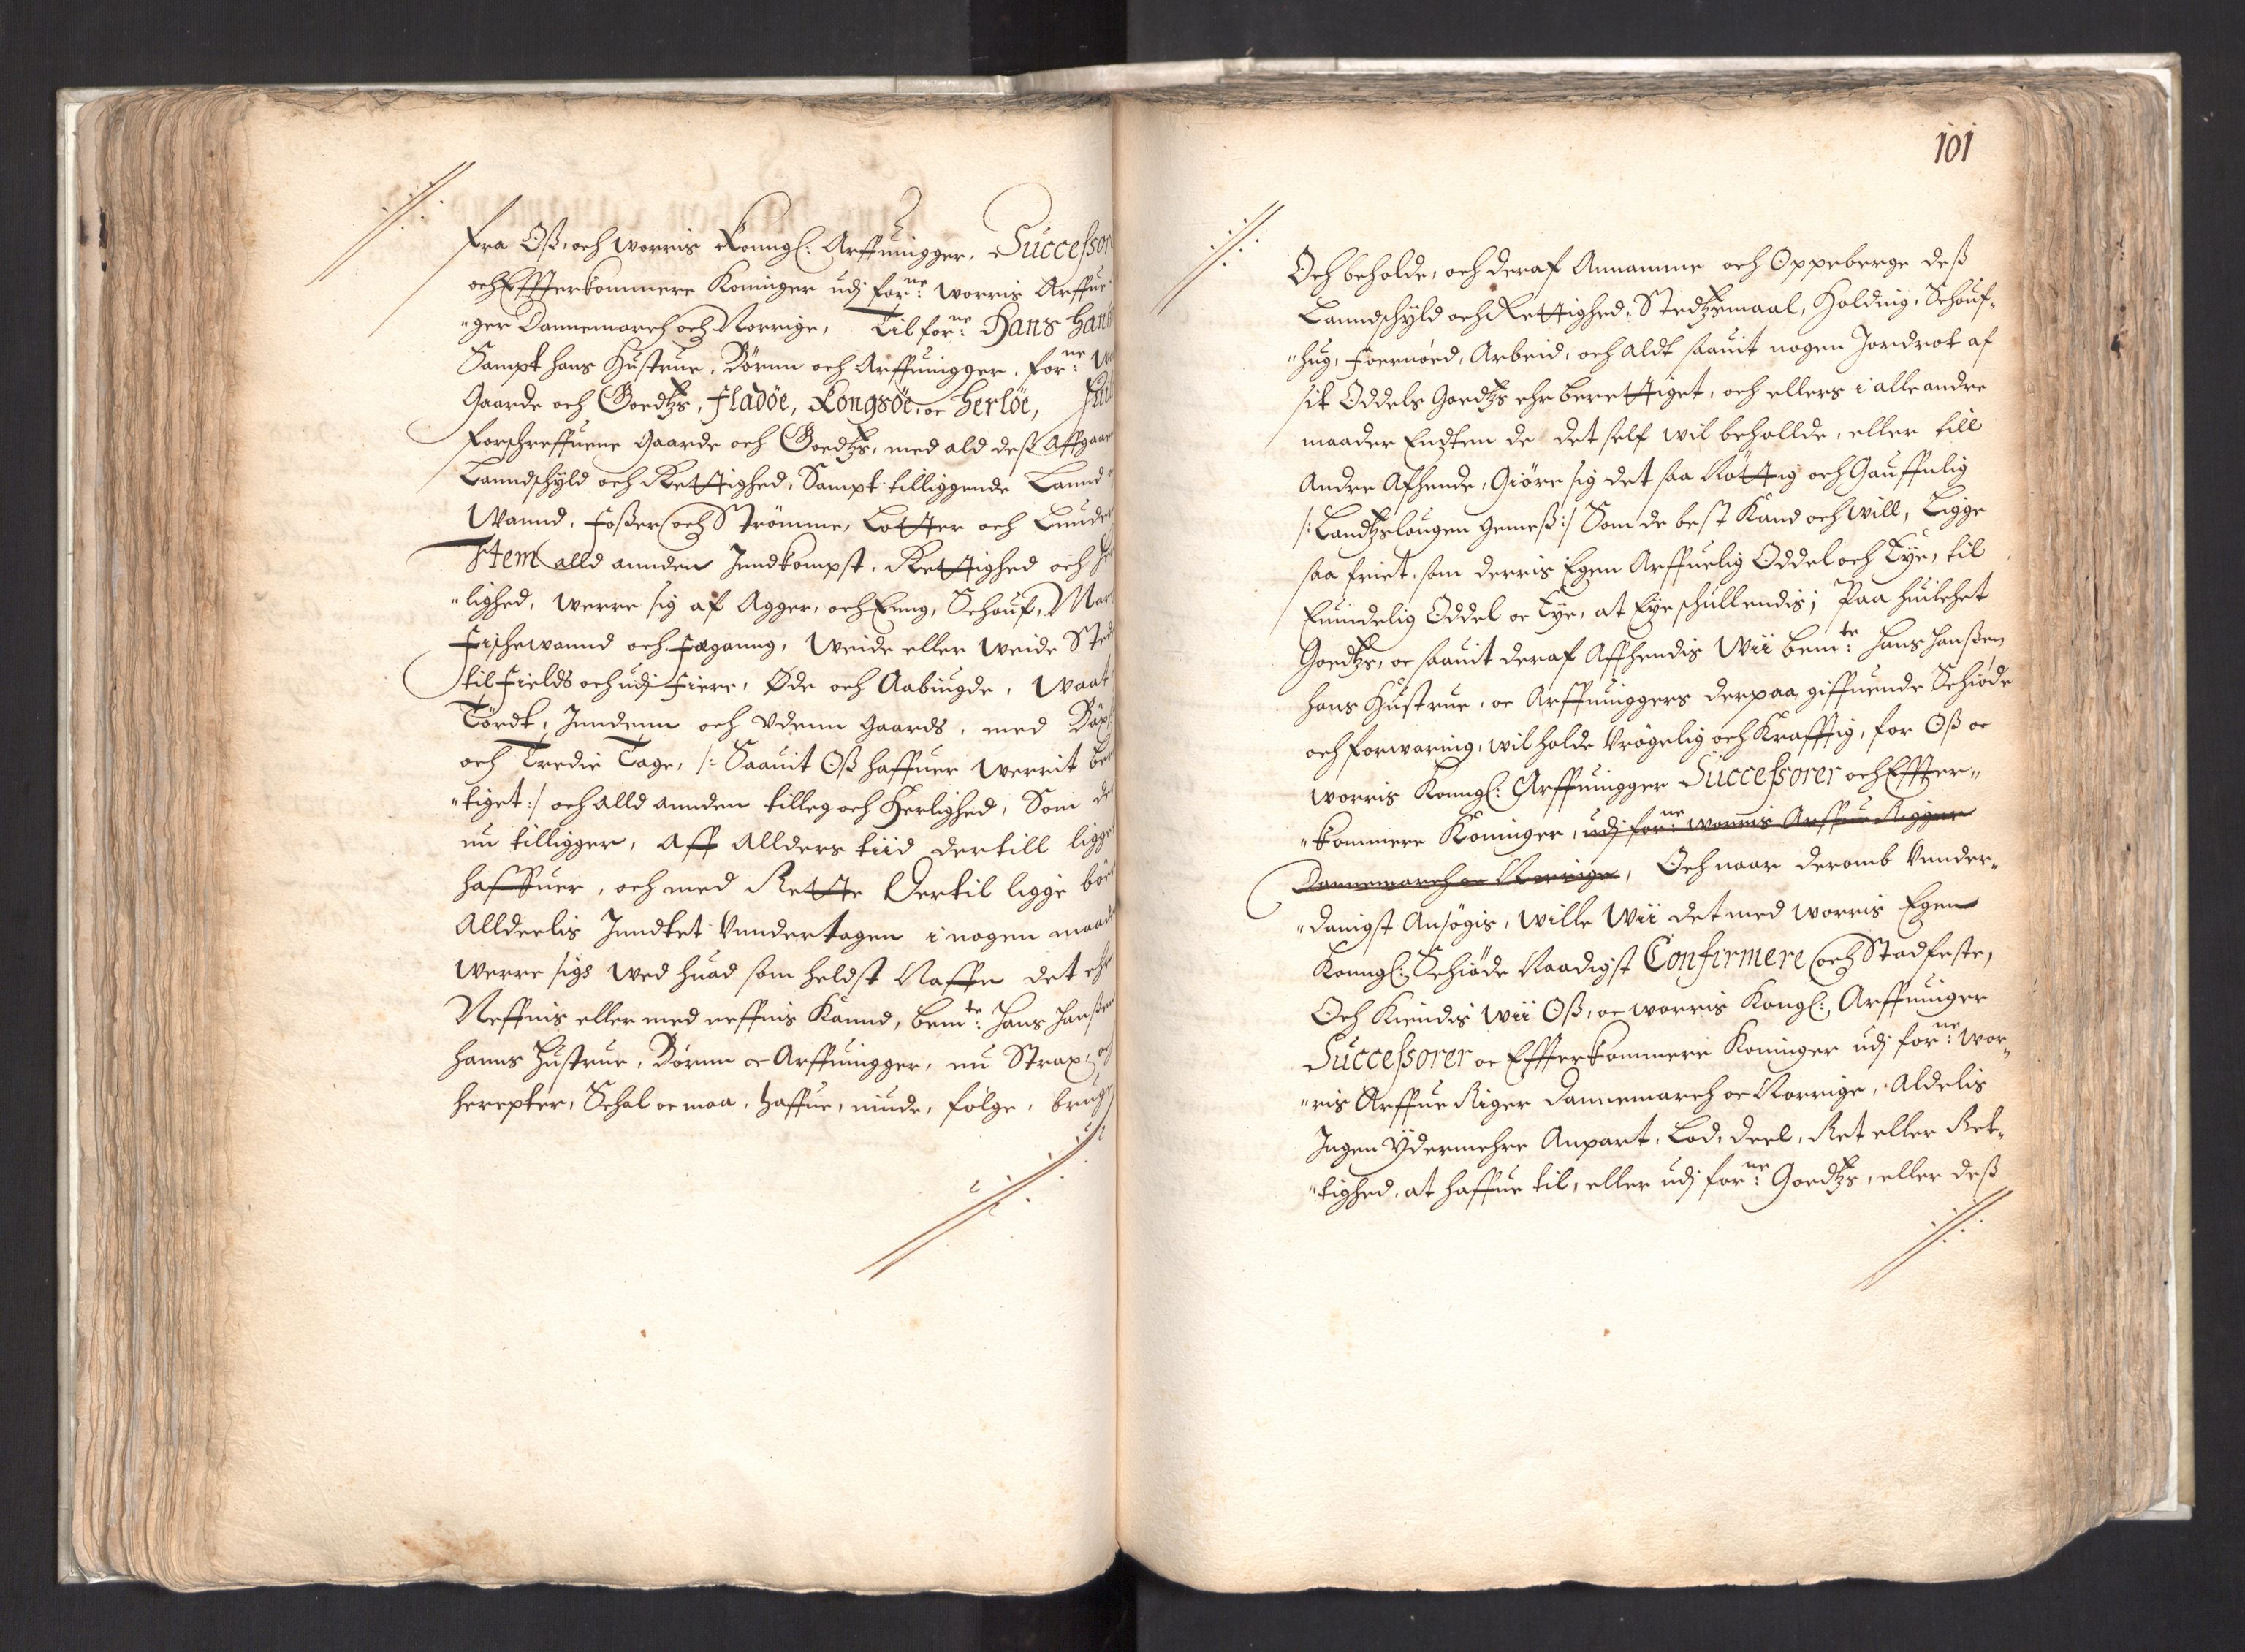 fra Oß, och worris Konngl: Arffuingger, Successor
och Effterkommere Koninger udj for:ne worris Arffue
"ger Dannemarch och Norrige, Til for:ne Hans Hanß
Sampt hans Hustrue, Börnn och Arffuingger, for:ne
Gaarde och Goedtzs, Fladöe, Longsöe, oc Herlöe,
forschreffuene Gaarde och Goedtzs, med ald deß Affgaar
Lanndschyld och Rettighed, Sampt tilliggende Lannd
Wannd, Foßer och Strömme, Lotter och Lunder
Item alld annden Jnndkompst, Rettighed och Her
"lighed, werre sig af Agger, och Enng, Schouf, Mar
Fischewannd och Fæganng, Weide eller Weide Sted
til Fields och udj Fiere, Øde och Aabiugde, Waat
Tördt, Jnndenn och Vdenn gaards, med Böx
och Tredie Tage, /: Saauit Oß haffuer werrit ber
"tiget :/ och alld annden tilleg och Herlighed, Som der
nu tilligger, Aff Allders tiid dertill ligget
haffuer, och med Rette Dertil ligge bör
Alldeelis Jnndtet Vnndertagen i nogen maade
werre sigs wed huad som heldst Naffn det ehr
Neffnis eller med neffnis Kannd, bem:te Hans Hanßen
Hanns Hustrue, Börnn oc Arffuingger, nu Strax, och
herepter, Schal oc maa, Haffue, niude, følge, bruge

101
Och beholde, och deraf Annamme och Oppeberge deß
Lanndschyld och Rettighed, Stedtzmaal, Holding, Schouf-
"hug, Foernöed, Arbeid, och aldt saauit nogen Jordrot af
sit Oddels Goedtzs ehr berettiget, och ellers i alle andre
maader Endten de det self wil behollde, eller till
Andre Afhende, Giöre sig det saa Nöttig och Gauffnlig
/: Landtzslougen gemeß :/ Som de best Kand och will, Ligge
saa friet, som derris Egen Arffuelig Oddel och Eye, til
Euindelig Oddel oc Eye, at Eye schullendis; Paa huilchet
Goedtzs, oc saauit deraf Affhendis Wii bem:te Hans Hanßen
hans Hustrue, oc Arffuinggers derpaa giffuende Schiöde
och forwaring, wil holde Vrögelig och Krafftig, for Oß oc
worris Konngl: Arffuingger Successorer och Effter-
"kommere Koninger, udj for:ne worris Arffue Rigger
Dannemarch oc Norrige, Och naar deromb Vnder-
"danigst Ansögis, Wille Wii det med worris Egen
Konngl: Schiöde Naadigst Confirmere och Stadfeste,
Och Kiendis Wii Oß, oc worris Kongl: Arffuinger
Successorer oc Effterkommere Koninger udj for:ne wor-
"ris Arffue Riger Dannemarch oc Norrige, Aldelis
Ingen ÿdermehre Anpart, Lod, deel, Ret eller Ret-
"tighed, at haffue til, eller udj for:ne Goedtzs, eller deß